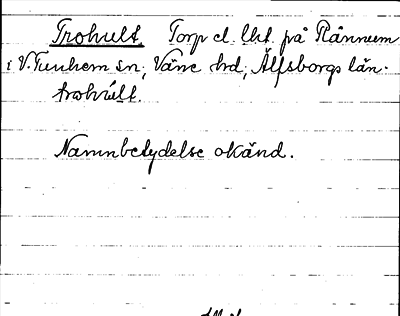 Trohult. Torp el. lht. på Rånnum
i V. Tunhem sn, Väne hd, Älfsborgs län.
trohúlt.
Namnbetydelse okänd.